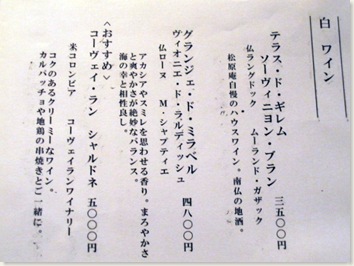 白 ワイン
テラス・ド・ギレム
ソーヴィニヨン・ブラン 三五〇〇円
仏ラングドック ムーランド・ガザック
松原庵自慢のハウスワイン。南仏の地酒。
グランジェ・ド・ミラベル
ヴィオニエ・ド・ラルディッシュ 四八〇〇円
仏ローヌ M・シャプティエ
アカシアやスミレを思わせる香り。まろやかさ
と爽やかさが絶妙なバランス。
海の幸と相性良し。
〈おすすめ〉
コーヴェイ・ラン シャルドネ 五〇〇〇円
米コロンビア コーヴェイランワイナリー
コクのあるクリーミーなワイン。
カルパッチョや地鶏の串焼きとご一緒に。